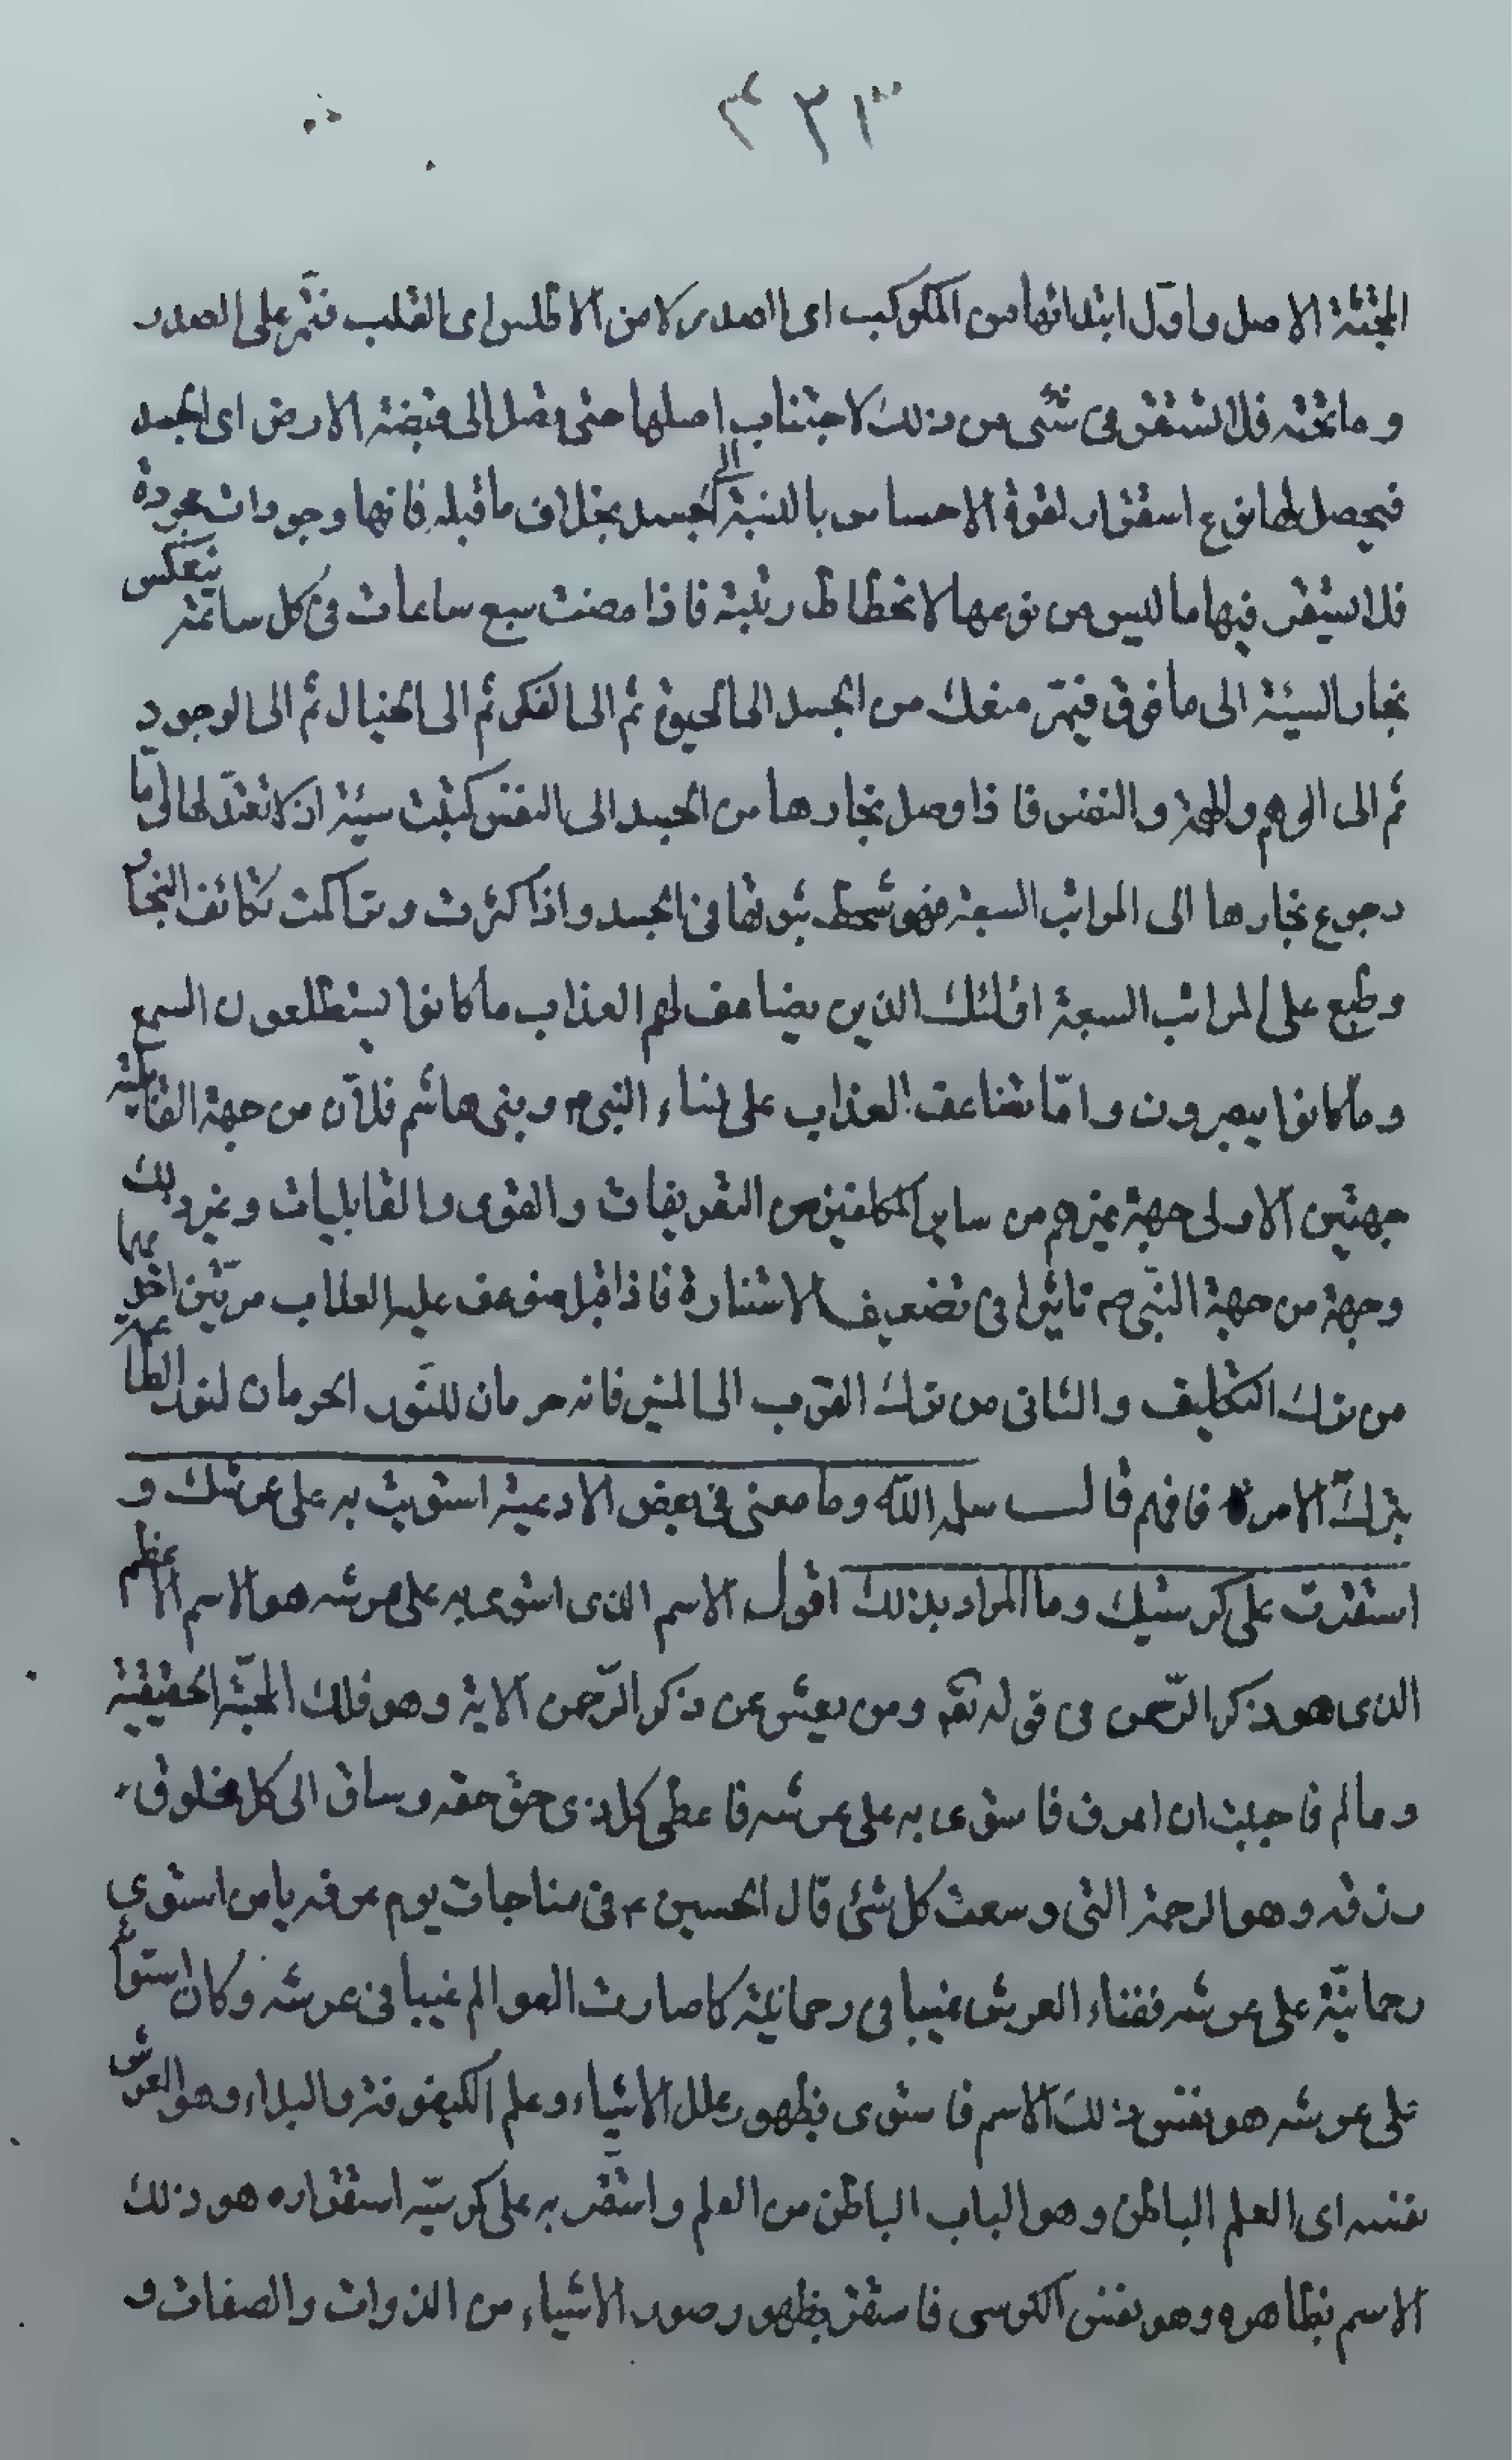 ٣٢٣
المجتثة الاصل واوّل ابتدائها من المكوكب اى الصدر لا من الاطلس اى القلب فتمّر على الصدر
وما تحته فلا تستقر فى شئ من ذلك لاجتناب اصلها حتى يصل الى قبضة الارض اى الجسد
فيحصل لها نوع استقرار لقوة الاحساس بالنسبة الى الجسد بخلاف ما قبله فانها وجودات مجردة
فلا يستقر فيها ما ليس من نوعها لانحطاط رتبة فاذا مضت سبع ساعات فى كل ساعة ينعكس
بخار السيئة الى ما فوق فيمّر منعك من الجسد الى الحيوة ثم الى الفكر ثم الى الخيال ثم الى الوجود
ثم الى الوهم والهمة والنفس فاذا وصل بخارها من الجسد الى النفس كتبت سيئة اذ لا تعتدّ لها الى ما
رجوع بخارها الى المراتب السبعة فهو شحط ثبوتها فى الجسد واذا كثرت وتراكمت تكاثف البخار
وطبع على المراتب السبعة اولئك الذين يضاعف لهم العذاب ما كانوا يستطلعون السمع
وما كانوا يبصرون وامّا تضاعف العذاب على نساء النبي ص وبنى هاشم فلانّ من جهة القابلية
جهتين الاولى جهة تميزهم من ساير المكلفين من التعريفات والقوى والقابليات وغير ذلك
وجهة من جهة النّبى ص تاثيرا فى تضعيف الاستنارة فاذا قبل ضوعف عليه العذاب مرتّين احديهما
من ترك التكليف والثانى من ترك القرب الى المنير فانه حرمان للنّور الحرمان لنور الطاعة
بترك الامر فافهم قال سلمه الله وما معنى فى بعض الادعية استويت به على عرشك و
استقررت على كرسيك وما المراد بذلك اقول الاسم الذى استوى به على عرشه هو الاسم الاعظم
الذى هو ذكر الرّحمن فى قوله تعٰم ومن يعش عن ذكر الرّحمن الاية وهو فلك المحبّة الحقيقية
وما لم فاحببت ان اعرف فاستوى به على عرشه فاعطى كل ذى حق حقه وساق الى كل مخلوق
رزقه وهو الرحمة التى وسعت كل شئ قال الحسين ع فى مناجات يوم عرفه يا من استوى
رحمانيّة على عرشه فغناء العرش غيبا فى رحمانيّة كما صارت العوالم غيبا فى عرشه وكان استواؤه
على عرشه هو نفس ذلك الاسم فاستوى بظهور علل الاشياء وعلم الكيفوفة والبداء وهو العرش
نفسه اى العلم الباطن وهو الباب الباطن من العلم واستقر به على كرسيّه استقراره هو ذلك
الاسم بظاهره وهو نفس الكرسى فاستقر بظهور صور الاشياء من الذوات والصفات و